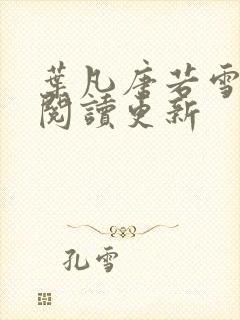 葉凡唐若雪
閱讀更新
孔雪